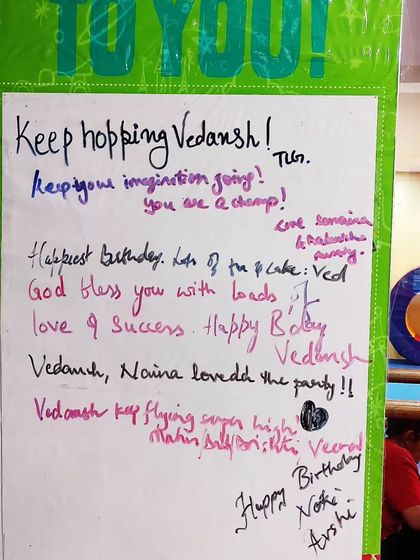 TO YOU!
Keep hopping Vedansh!
TLG.
Keep your imagination going!
You are a champ!
Love
Happiest Birthday. Lots of fun & Cake : Ved
God bless you with loads of
love & Success. Happy Bday
Vedansh
Vedansh, Naina lovedd the party!!
Vedansh keep flying super high
Happy Birthday
Arshi